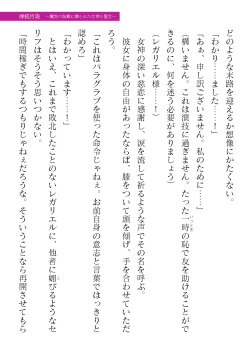 神核汚染 ～魔悦の胎動に嬲られた女神と聖女～
どのような末路を迎えるか想像にかたくない。
「わかり……ました……！」
「ああ、申し訳ございません、私のために……」
「構いません。これは演技に過ぎません。たった一時の恥で友を助けることがで
きるのに、何を迷う必要がありましょう」
「レガリエル様……！」
女神の深い慈悲に感謝し、涙を流して祈るような声でその名を呼ぶ。
彼女に身体の自由があったならば、膝をついて頭を傾げ、手を合わせていただ
ろう。
「これはパラグラブを使った命令じゃねぇ。お前自身の意志と言葉ではっきりと
認めろ」
「わかっています……！」
とはいえ、これまで敗北したことのないレガリエルに、他者に媚びるようなセ
リフはそうそう思いつかない。
「時間稼ぎでもするつもりじゃねぇだろうな。そういうことなら再開させてもら